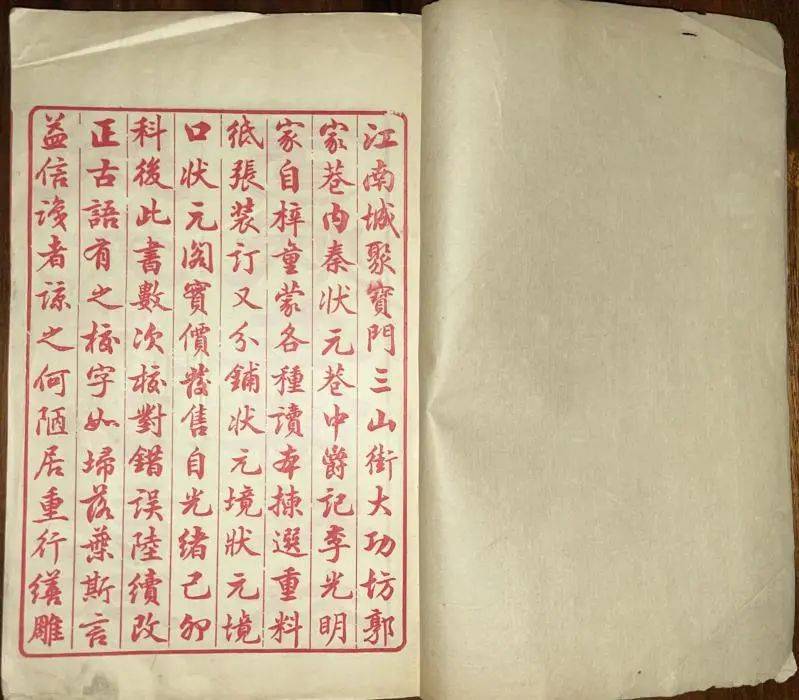 江南城聚寶門三山街大功坊郭
家巷内秦状元巷中爵記李光明
家自梓童蒙各種讀本揀選重料
紙張装訂又分鋪状元境状元境
口状元阁實價發售自光緒己卯
科後此書數次校對錯误陸續改
正古語有之校字如埽落葉斯言
益信读者諒之何陋居重行繕雕